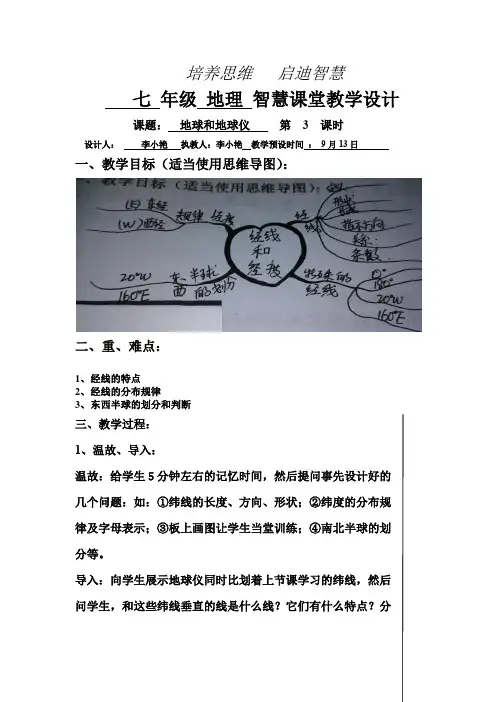 培养思维 启迪智慧
七 年级 地理 智慧课堂教学设计
课题： 地球和地球仪 第 3 课时
设计人： 李小艳 执教人：李小艳 教学预设时间 ： 9月13日
一、教学目标（适当使用思维导图）：
教学目标（适当使用思维导图）：
(E) 东经
(W) 西经
规律 经度
经线
形状
指示方向
条数
经线和经度
20°W
160°E
东西半球的划分
特殊的经线
0°
180°
20°W
160°E
二、重、难点：
1、经线的特点
2、经线的分布规律
3、东西半球的划分和判断
三、教学过程：
1、温故、导入：
温故：给学生5分钟左右的记忆时间，然后提问事先设计好的
几个问题：如：①纬线的长度、方向、形状；②纬度的分布规
律及字母表示；③板上画图让学生当堂训练；④南北半球的划
分等。
导入：向学生展示地球仪同时比划着上节课学习的纬线，然后
问学生，和这些纬线垂直的线是什么线？它们有什么特点？分